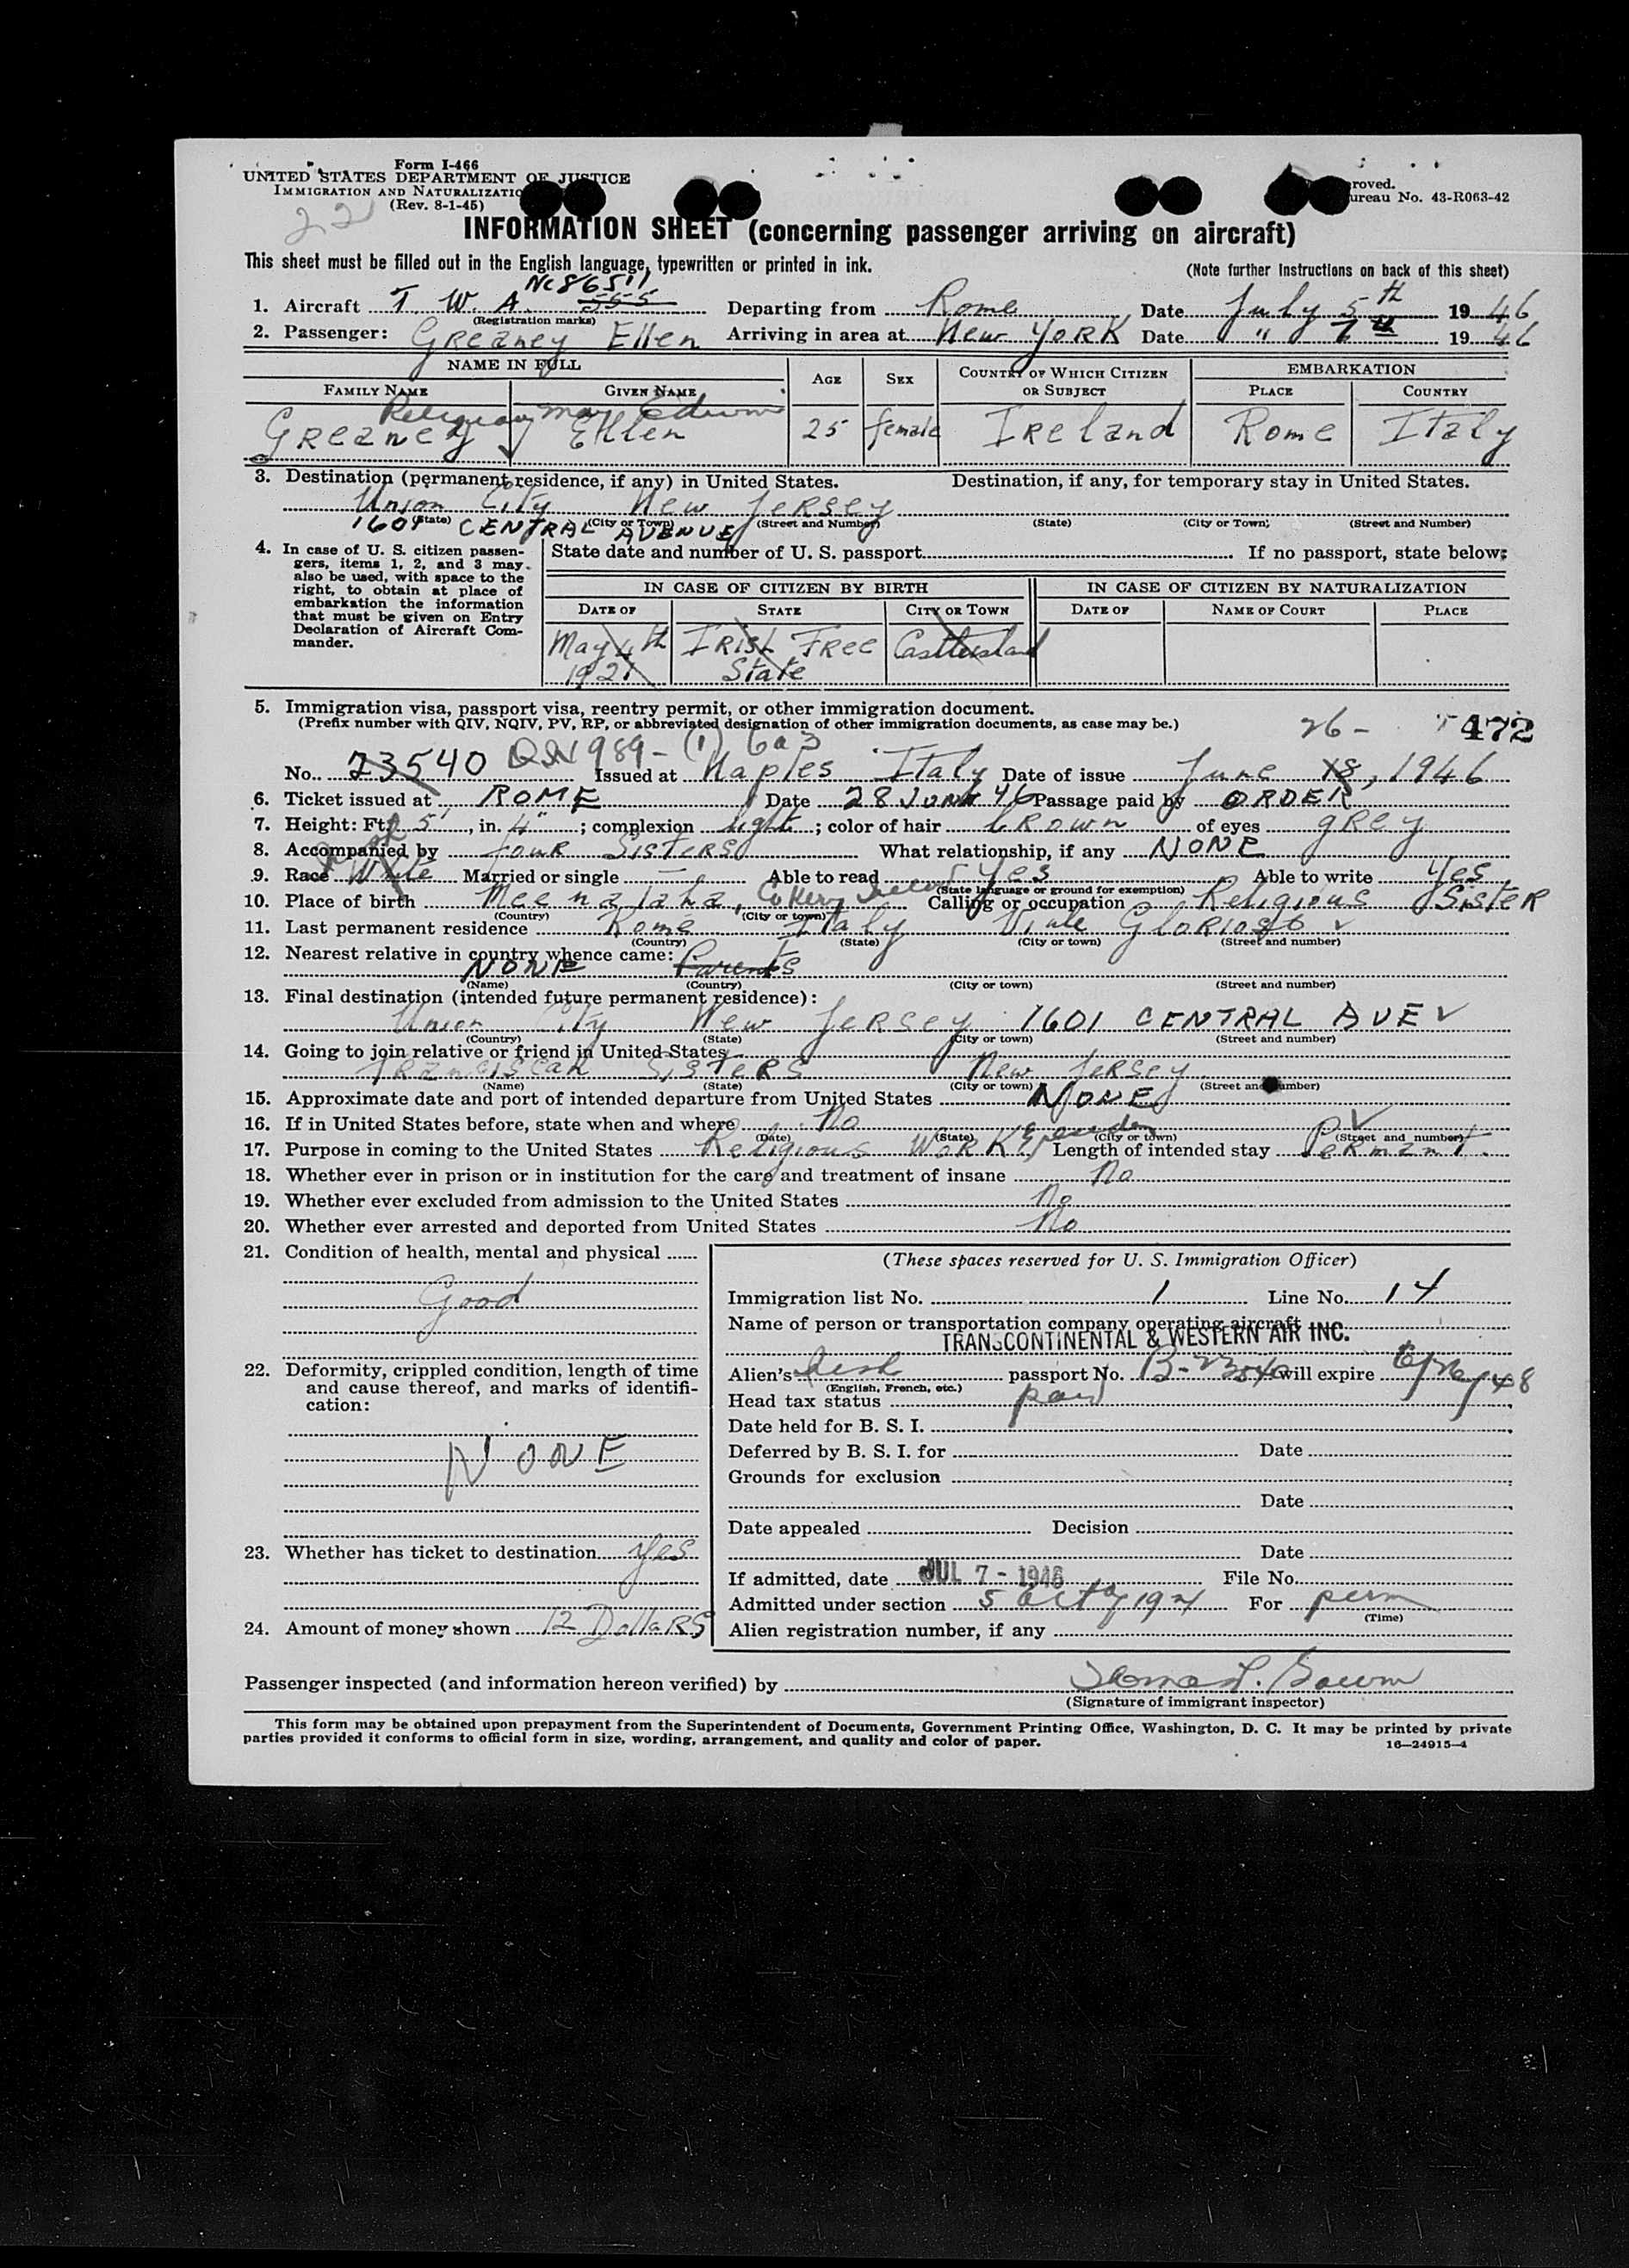 Form I-466
UNITED STATES DEPARTMENT OF JUSTICE
IMMIGRATION AND NATURALIZATIO
(Rev. 8-1-45)
roved.
ureau No. 43-R063-42
22
INFORMATION SHEET (concerning passenger arriving on aircraft)
This sheet must be filled out in the English language, typewritten or printed in ink.
(Note further instructions on back of this sheet)
NC86511
1. Aircraft T. W. A. 555 Departing from Rome Date July 5th 1946
(Registration marks)
2. Passenger: Greaney Ellen Arriving in area at New York Date " 7th 1946
NAME IN FULL AGE SEX COUNTRY OF WHICH CITIZEN OR SUBJECT EMBARKATION
FAMILY NAME GIVEN NAME PLACE COUNTRY
Religious May Edwin
Greaney Ellen 25 female Ireland Rome Italy
3. Destination (permanent residence, if any) in United States. Destination, if any, for temporary stay in United States.
Union City New Jersey
(State) (City or Town) (Street and Number) (State) (City or Town) (Street and Number)
1601 CENTRAL AVENUE
4. In case of U. S. citizen passengers, items 1, 2, and 3 may also be used, with space to the right, to obtain at place of embarkation the information that must be given on Entry Declaration of Aircraft Commander.
State date and number of U. S. passport If no passport, state below:
IN CASE OF CITIZEN BY BIRTH IN CASE OF CITIZEN BY NATURALIZATION
DATE OF STATE CITY OR TOWN DATE OF NAME OF COURT PLACE
May 4th 1921 Irish Free State Castleisland
5. Immigration visa, passport visa, reentry permit, or other immigration document.
(Prefix number with QIV, NQIV, PV, RP, or abbreviated designation of other immigration documents, as case may be.)
26- 472
No. 23540 989-(1) 6a3 Issued at Naples Italy Date of issue June 18, 1946
6. Ticket issued at ROME Date 28 JUNE 46 Passage paid by ORDER
7. Height: Ft. 5', in. 4"; complexion light; color of hair brown of eyes grey
8. Accompanied by four Sisters What relationship, if any NONE
Irish
9. Race White Married or single — Able to read yes Able to write Yes
(State language or ground for exemption)
10. Place of birth Meenalaha, Co Kerry Ireland Calling or occupation Religious Sister
(Country) (City or town)
11. Last permanent residence Rome Italy Viale Glorioso
(Country) (State) (City or town) (Street and number)
12. Nearest relative in country whence came: Parents
NONE
(Name) (Country) (City or town) (Street and number)
13. Final destination (intended future permanent residence):
Union City New Jersey 1601 CENTRAL AVE
(Country) (State) (City or town) (Street and number)
14. Going to join relative or friend in United States
Franciscan Sisters New Jersey
(Name) (State) (City or town) (Street and number)
15. Approximate date and port of intended departure from United States NONE
16. If in United States before, state when and where No
(Date) (State) (City or town) (Street and number)
17. Purpose in coming to the United States Religious Work Length of intended stay Permant.
18. Whether ever in prison or in institution for the care and treatment of insane No
19. Whether ever excluded from admission to the United States No
20. Whether ever arrested and deported from United States No
21. Condition of health, mental and physical
Good
22. Deformity, crippled condition, length of time and cause thereof, and marks of identification:
NONE
23. Whether has ticket to destination yes
24. Amount of money shown 12 Dollars
(These spaces reserved for U. S. Immigration Officer)
Immigration list No. 1 Line No. 14
Name of person or transportation company operating aircraft
TRANSCONTINENTAL & WESTERN AIR INC.
Alien's Irish passport No. B-23540 will expire 6/26/48
(English, French, etc.)
Head tax status paid
Date held for B. S. I.
Deferred by B. S. I. for Date
Grounds for exclusion
Date
Date appealed Decision
Date
If admitted, date JUL 7 - 1946 File No.
Admitted under section 5 act of 1924 For perm
(Time)
Alien registration number, if any
Passenger inspected (and information hereon verified) by
(Signature of immigrant inspector)
This form may be obtained upon prepayment from the Superintendent of Documents, Government Printing Office, Washington, D. C. It may be printed by private
parties provided it conforms to official form in size, wording, arrangement, and quality and color of paper.
16—24915-4